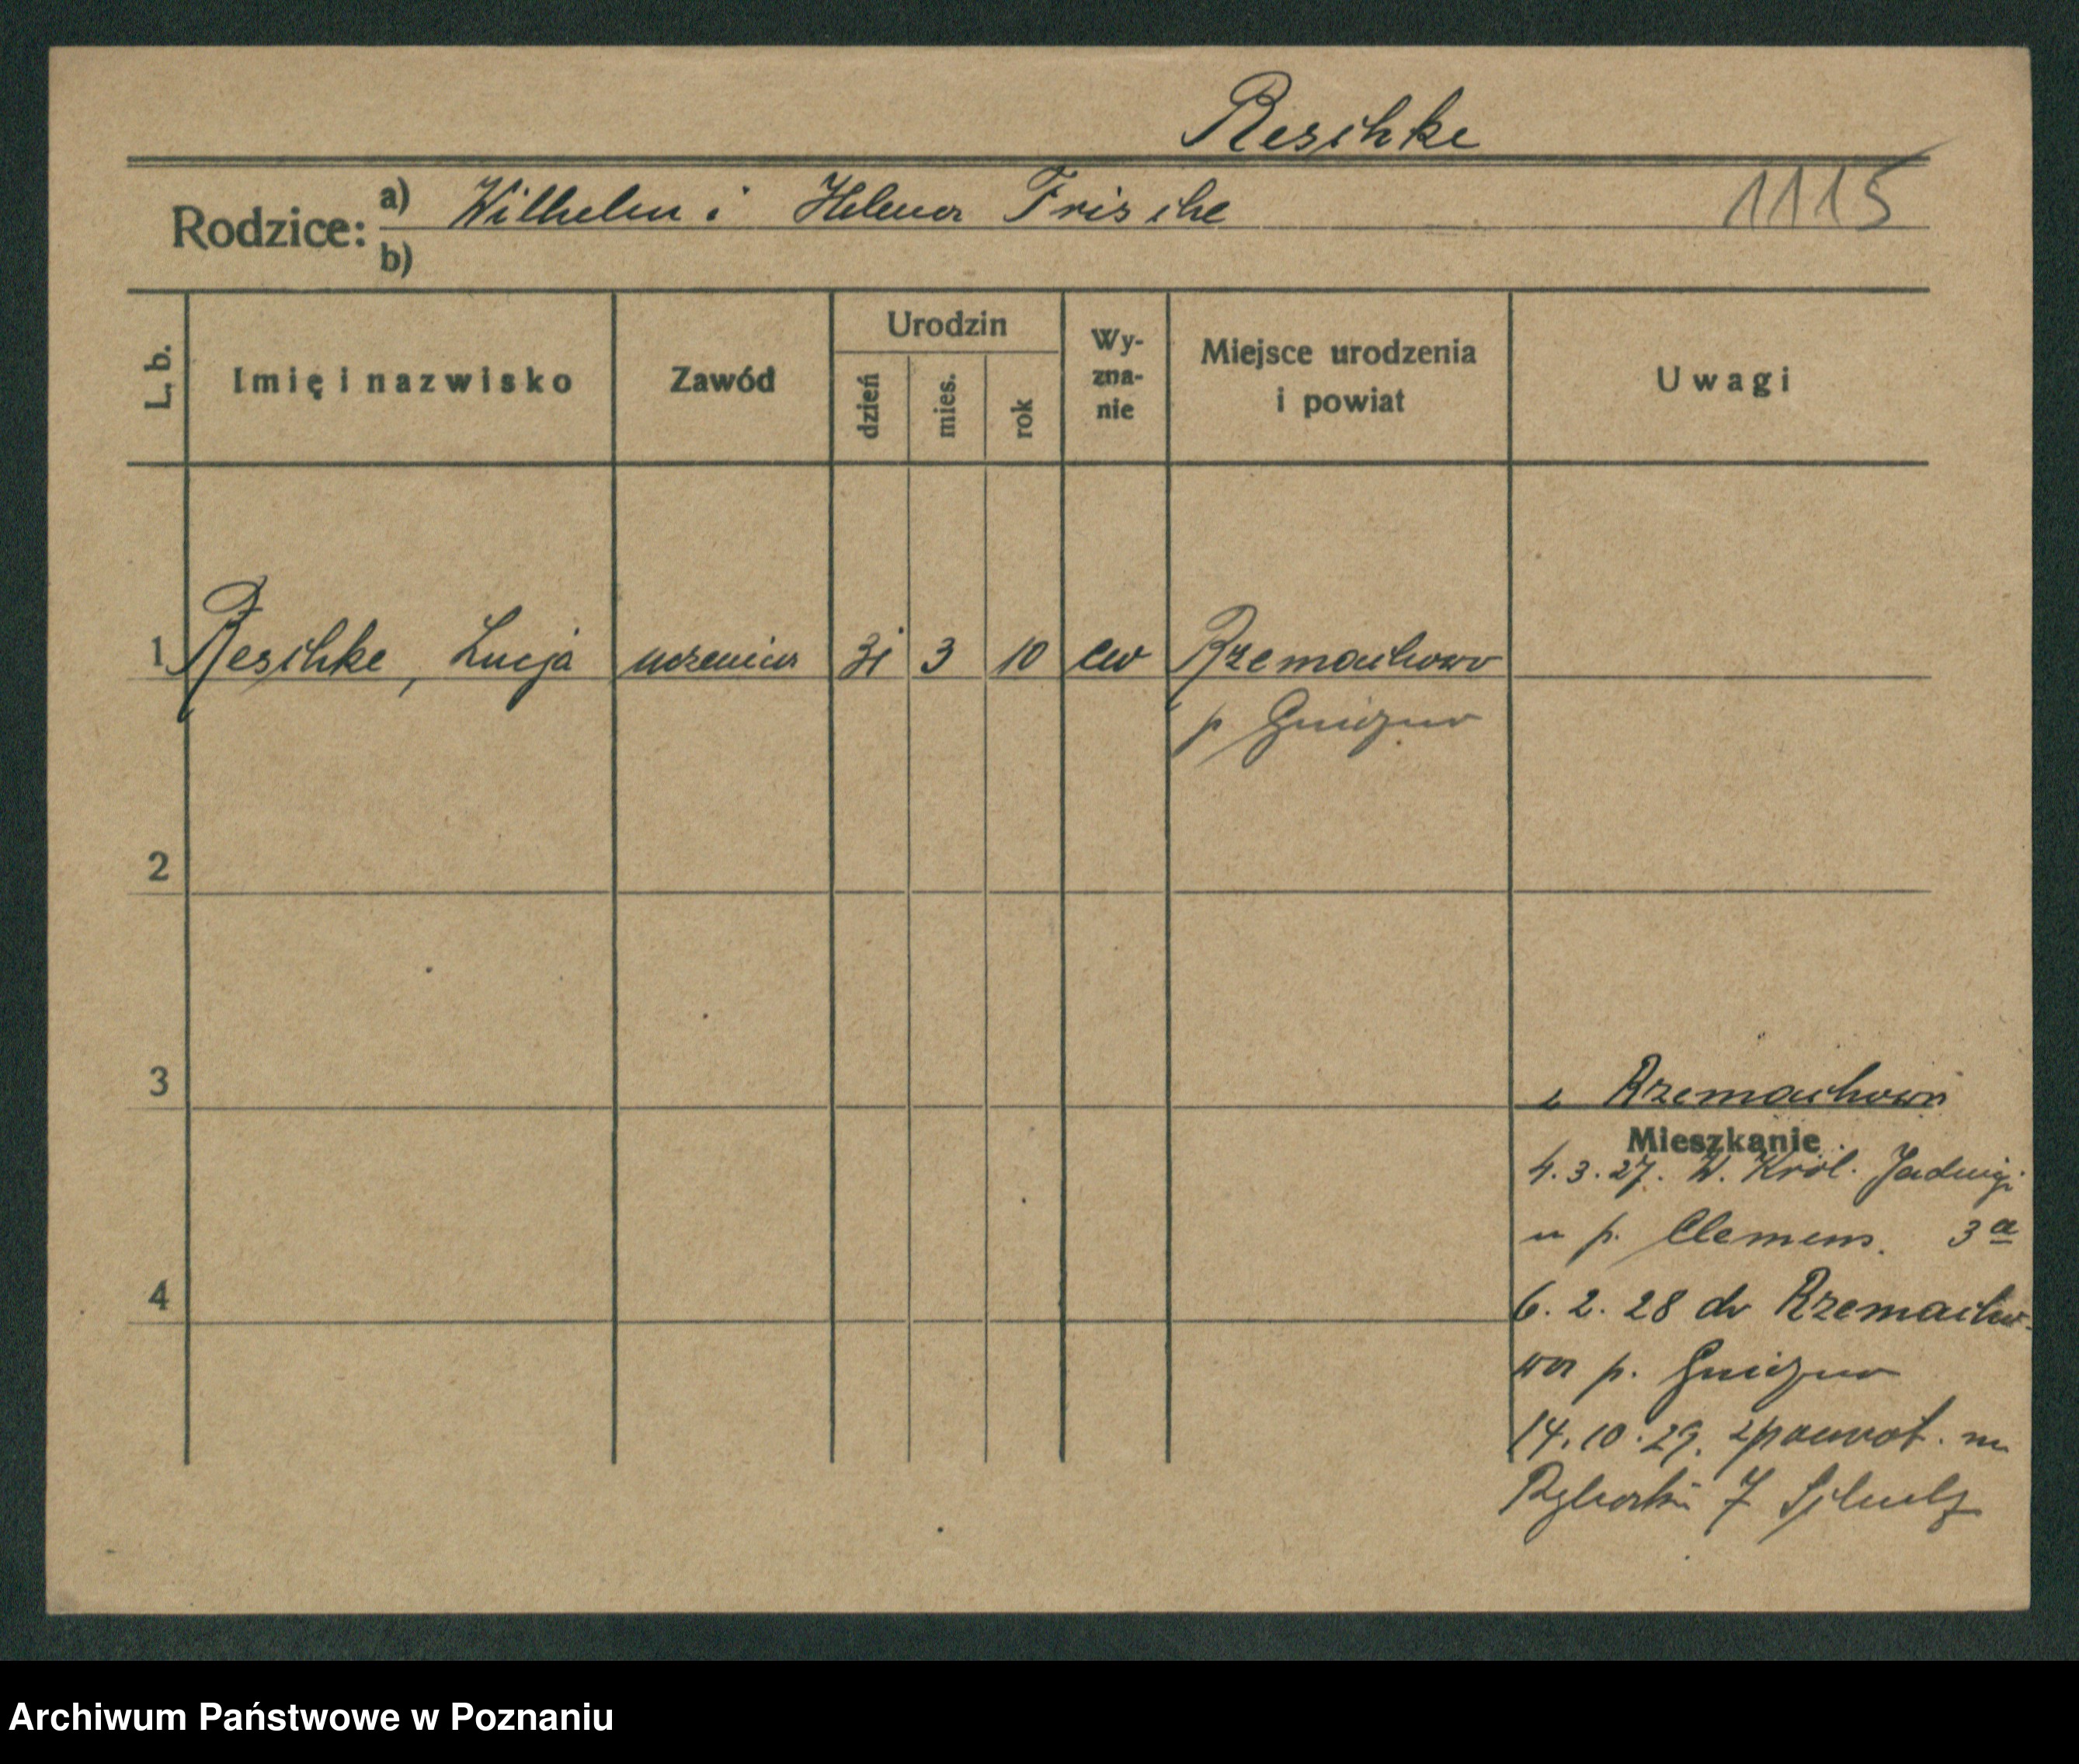 Reschke
1115
Rodzice: a) Wilhelm i Helena Frische
b)
L. b.
Imię i nazwisko
Zawód
Urodzin
dzień
mies.
rok
Wy-
zna-
nie
Miejsce urodzenia
i powiat
Uwagi
1 Reschke, Lucja uczenica 31 3 10 ew Rzemachowo
p Gniezno
2
3
z Rzemachowa
Mieszkanie
4.3.27. W. Król. Jadwigi
u p. Clemens. 3a
4
6. 2. 28 do Rzemacho-
wa p. Gniezno
14.10.29. zpowrot. na
Rybaki 7 Schulz
Archiwum Państwowe w Poznaniu